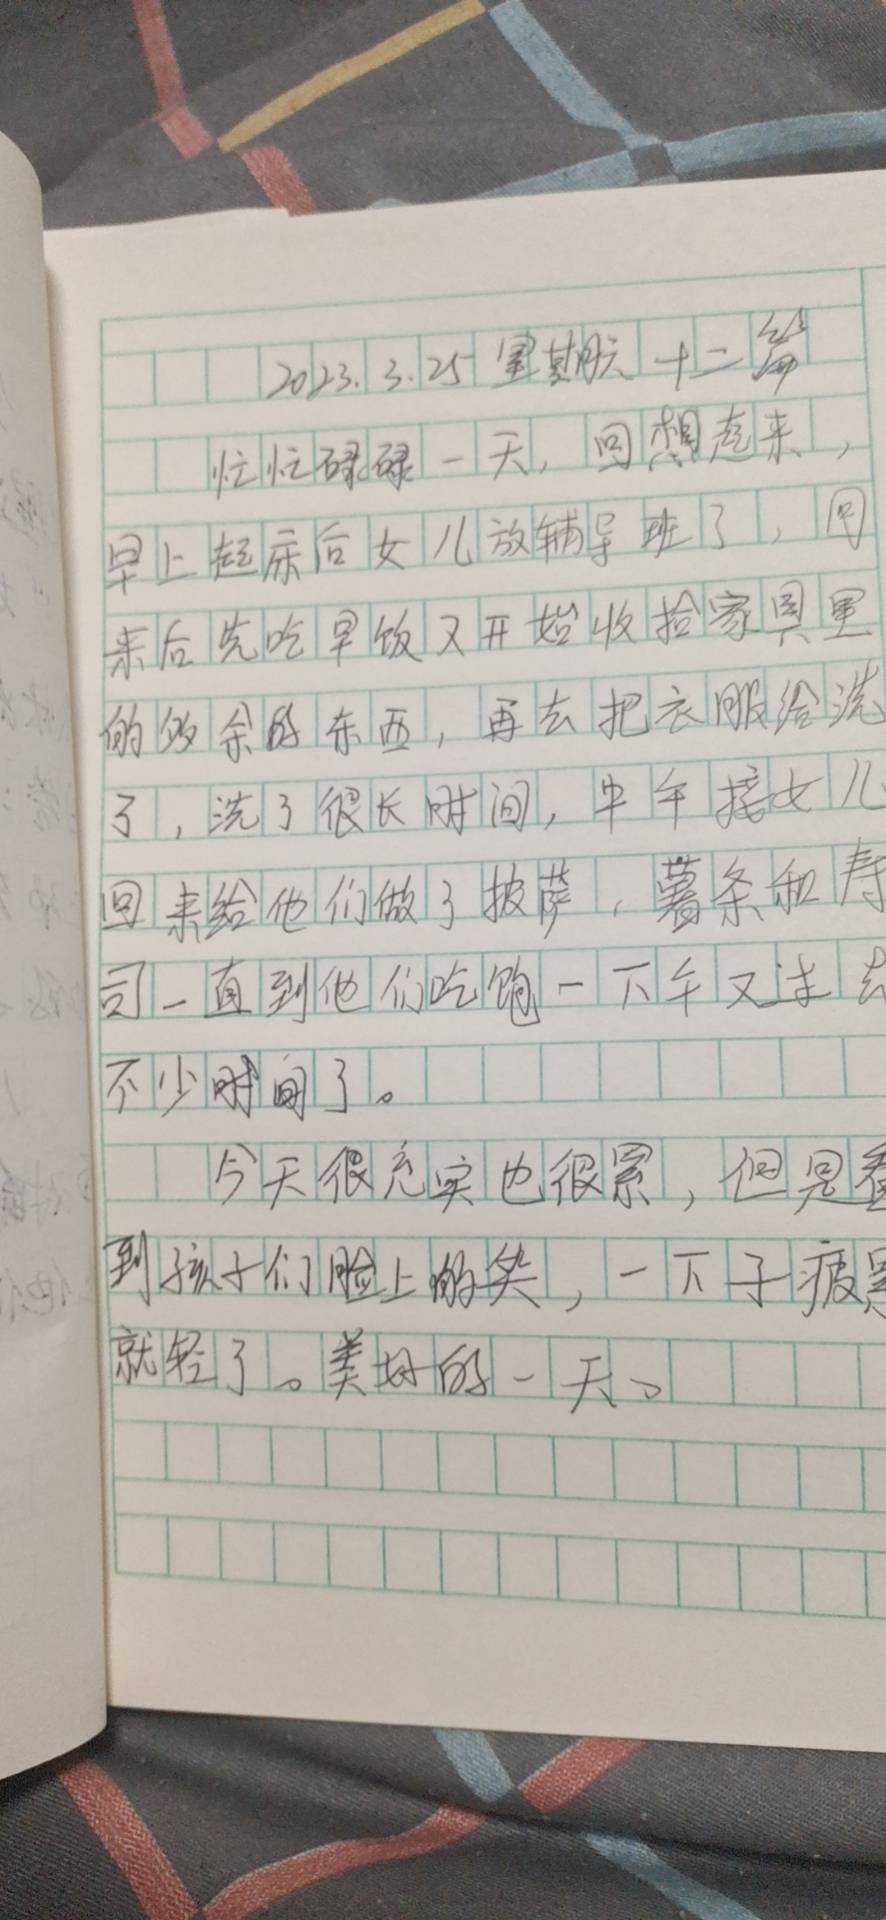 2023.3.25 星期六 十二篇
忙忙碌碌一天，回想起来，
早上起床后女儿放辅导班了，回
来后先吃早饭又开始收拾家具里
的多余的东西，再去把衣服给洗
了，洗了很长时间，中午接女儿
回来给他们做了披萨，薯条和寿
司一直到他们吃饱一下午又过去
不少时间了。
今天很充实也很累，但是看
到孩子们脸上的笑，一下子疲累
就轻了。美好的一天。